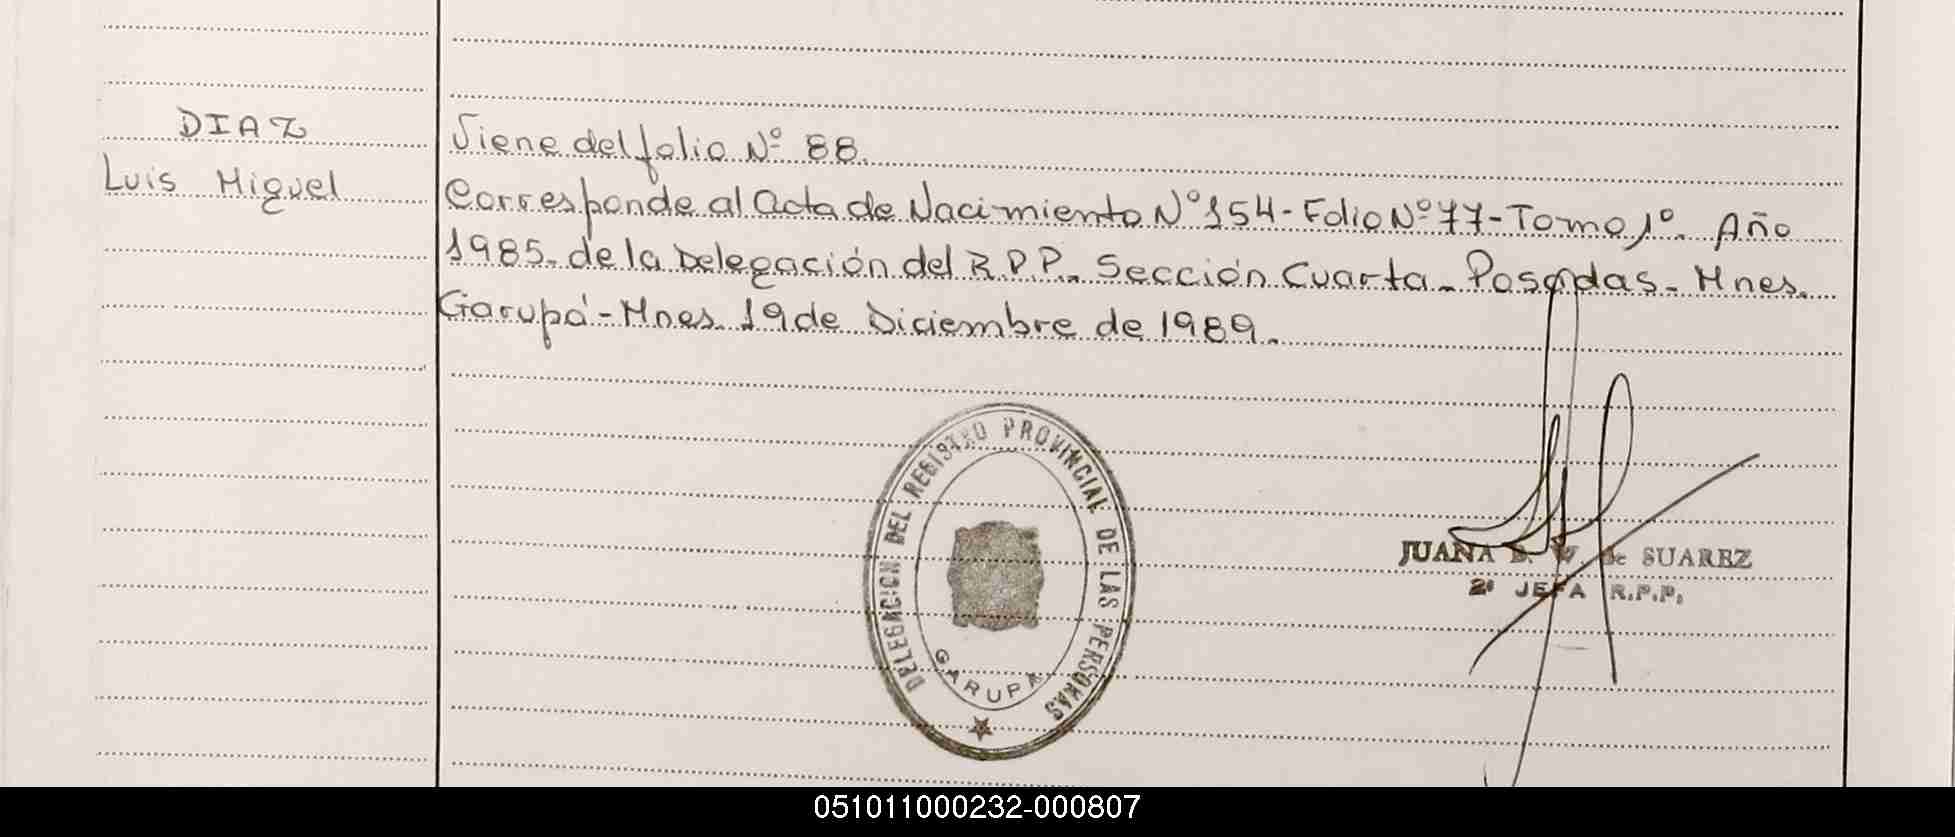 DIAZ
Luis Miguel
Viene del folio Nº 88.
Corresponde al Acta de Nacimiento Nº 154 - Folio Nº 77 - Tomo 1º. Año
1985. de la Delegación del R.P.P. Sección Cuarta - Posadas - Mnes.
Garupá - Mnes. 19 de Diciembre de 1989.
DELEGACION DEL REGISTRO PROVINCIAL DE LAS PERSONAS
GARUPA
JUANA de SUAREZ
2º JEFA R.P.P.
051011000232-000807